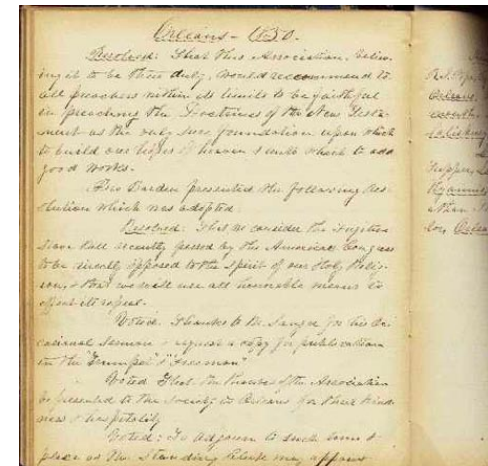 Orleans - 1850.
Resolved: That this Association, believ-
ing it to be their duty, would recommend to
all preachers within its limits to be faithful
in preaching the Doctrines of the New Testa-
ment as the only sure foundation upon which
to build our hopes of heaven & unto which to add
good works.
Bro Barden presented the following Res-
olution which was adopted
Resolved: That we consider the Fugitive
Slave Bill recently passed by the American Congress
to be directly opposed to the spirit of our Holy Relig-
ion, & that we will use all honorable means to
effect its repeal.
Voted. Thanks to Br. Sawyer for his Oc-
casional Sermon & request a copy for publication
in the "Trumpet" & "Freeman"
Voted That the thanks of the Association
be presented to the Society in Orleans for their kind-
ness & hospitality
Voted: To adjourn to such time &
place as the Standing Clerk may appoint
Orleans,
Hyannis